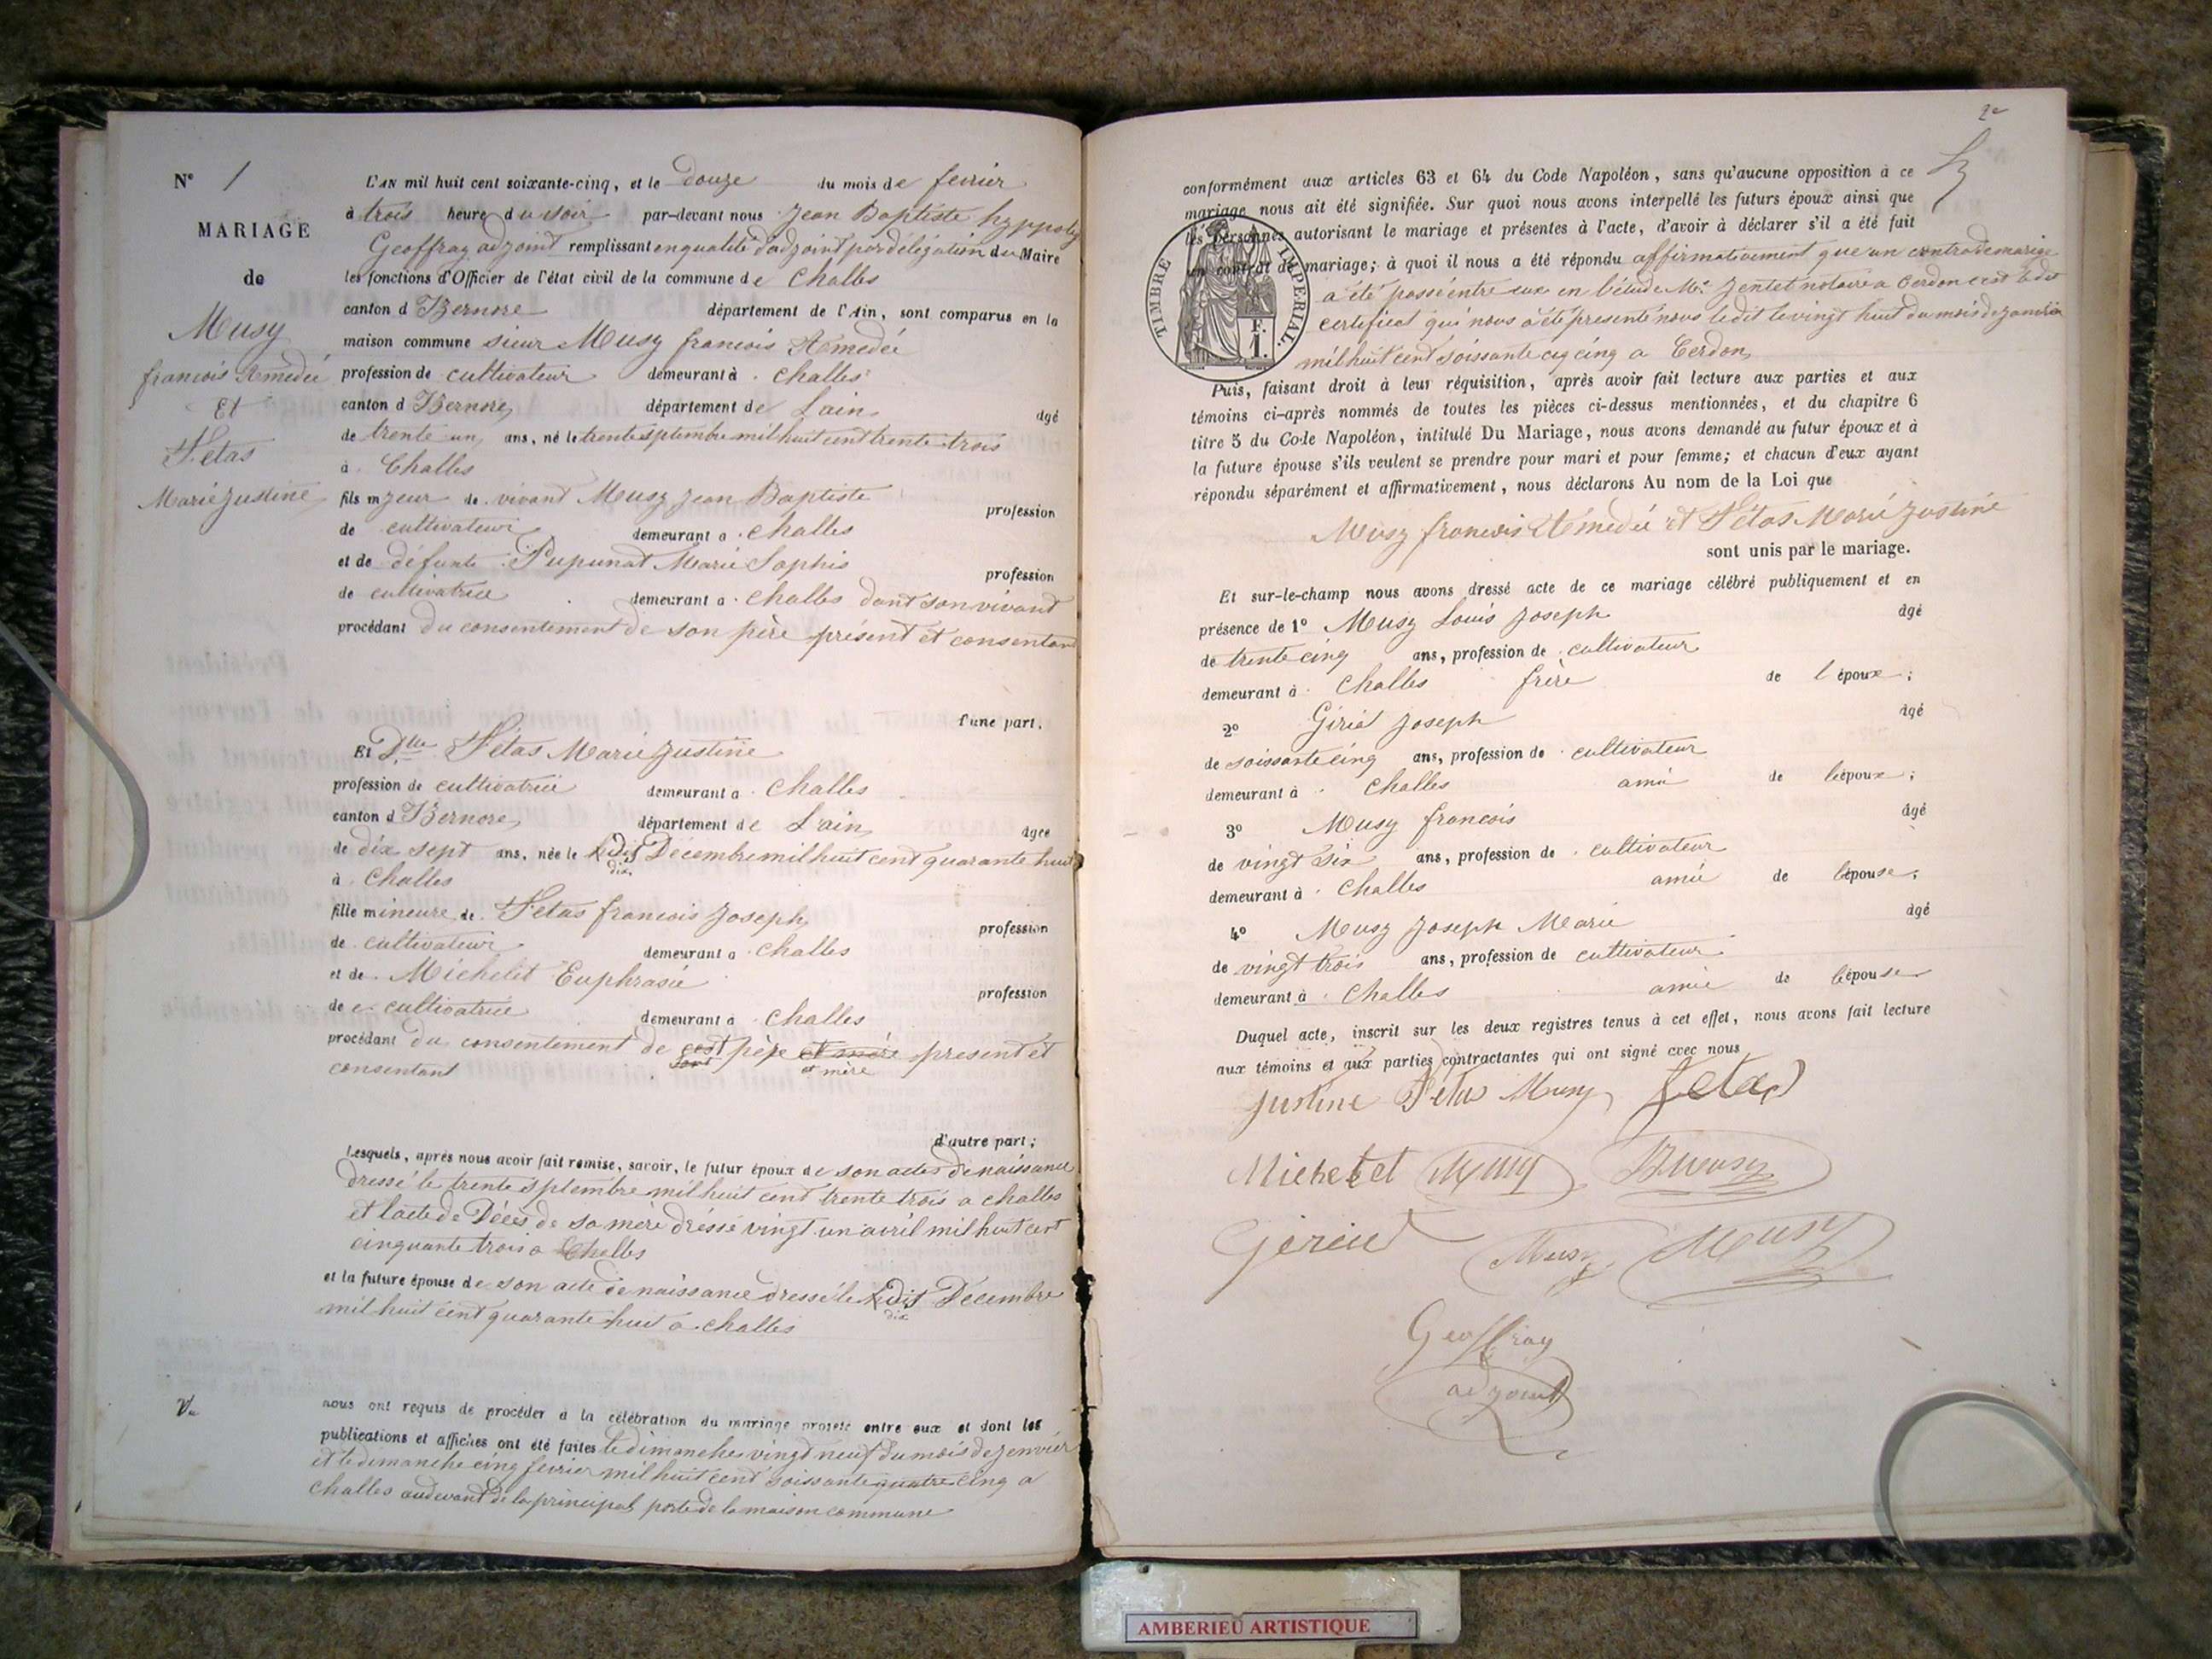 N° 1
MARIAGE
de
Musy
francois Amedée
Et
Fétas
Marie Justine
L'AN mil huit cent soixante-cinq, et le douze du mois de fevrier
à trois heure du soir par-devant nous Jean Baptiste hyppoly
Geoffray adjoint remplissant en qualité d'adjoint par délégation du Maire
les fonctions d'Officier de l'état civil de la commune de Challes
canton d'Izernore département de l'Ain, sont comparus en la
maison commune sieur Musy francois Amedée
profession de cultivateur demeurant à Challes
canton d'Izernore département de Lain âgé
de trente un ans, né le trente septembre mil huit cent trente trois
à Challes
fils mjeur de vivant Musy Jean Baptiste profession
de cultivateur demeurant a Challes
et de défunte Pupunat Marie Sophie profession
de cultivatrice demeurant a Challes dant son vivant
procédant du consentement de son père présent et consentant
d'une part.
Et Dlle Fétas Marie Justine
profession de cultivatrice demeurant a Challes
canton d'Izernore département de L'ain âgée
de dix sept ans, née le dix Décembre mil huit cent quarante huit
à Challes
fille mineure de Fetas francois Joseph profession
de cultivateur demeurant a Challes
et de Michelet Euphrasie profession
de cultivatrice demeurant à Challes
procédant du consentement de père et mère present et
consentant
d'autre part;
Lesquels, après nous avoir fait remise, savoir, le futur époux de son actes de naissance
dressé le trente septembre mil huit cent trente trois a challes
et l'acte de Décès de sa mère dréssé vingt un avril mil huit cent
cinquante trois a Challes
et la future épouse de son acte de naissance dressé le dix Décembre
mil huit cent quarante huit a challes
Vu
nous ont requis de procéder à la célébration du mariage projeté entre eux et dont les
publications et affiches ont été faites le dimanche vingt neuf du mois de jenvier
et le dimanche cinq fevrier mil huit cent soissante quatre cinq a
challes audevant de la principal porte de la maison commune
2e
conformément aux articles 63 et 64 du Code Napoléon, sans qu'aucune opposition à ce
mariage nous ait été signifiée. Sur quoi nous avons interpellé les futurs époux ainsi que
les personnes autorisant le mariage et présentes à l'acte, d'avoir à déclarer s'il a été fait
un contrat de mariage; à quoi il nous a été répondu affirmativement que un contra de mariage
a été passé entre eux en l'étude Me Jentet notaire a Cerdon
certificat qui nous a été presenté nous le dit le vingt huit du mois de janvier
mil huit cent soissante cinq a Cerdon
TIMBRE IMPERIAL.
F.
1.
Puis, faisant droit à leur réquisition, après avoir fait lecture aux parties et aux
témoins ci-après nommés de toutes les pièces ci-dessus mentionnées, et du chapitre 6
titre 5 du Code Napoléon, intitulé Du Mariage, nous avons demandé au futur époux et à
la future épouse s'ils veulent se prendre pour mari et pour femme; et chacun d'eux ayant
répondu séparément et affirmativement, nous déclarons Au nom de la Loi que
Musy francois Amedée et Fétas Marie Justine
sont unis par le mariage.
Et sur-le-champ nous avons dressé acte de ce mariage célébré publiquement et en
présence de 1° Musy Louis Joseph âgé
de trente cinq ans, profession de cultivateur
demeurant à Challes frère de l'époux;
2° Giriat Joseph âgé
de soissante cinq ans, profession de cultivateur
demeurant à Challes ami de l'époux;
3° Musy francois âgé
de vingt six ans, profession de cultivateur
demeurant à Challes amie de l'épouse;
4° Musy Joseph Marie âgé
de vingt trois ans, profession de cultivateur
demeurant à Challes amie de l'épouse
Duquel acte, inscrit sur les deux registres tenus à cet effet, nous avons fait lecture
aux témoins et aux parties contractantes qui ont signé avec nous
Justine Fetas Musy Fetas
Michelet Musy
Musy Musy
Geoffray
adjoint
AMBERIEU ARTISTIQUE